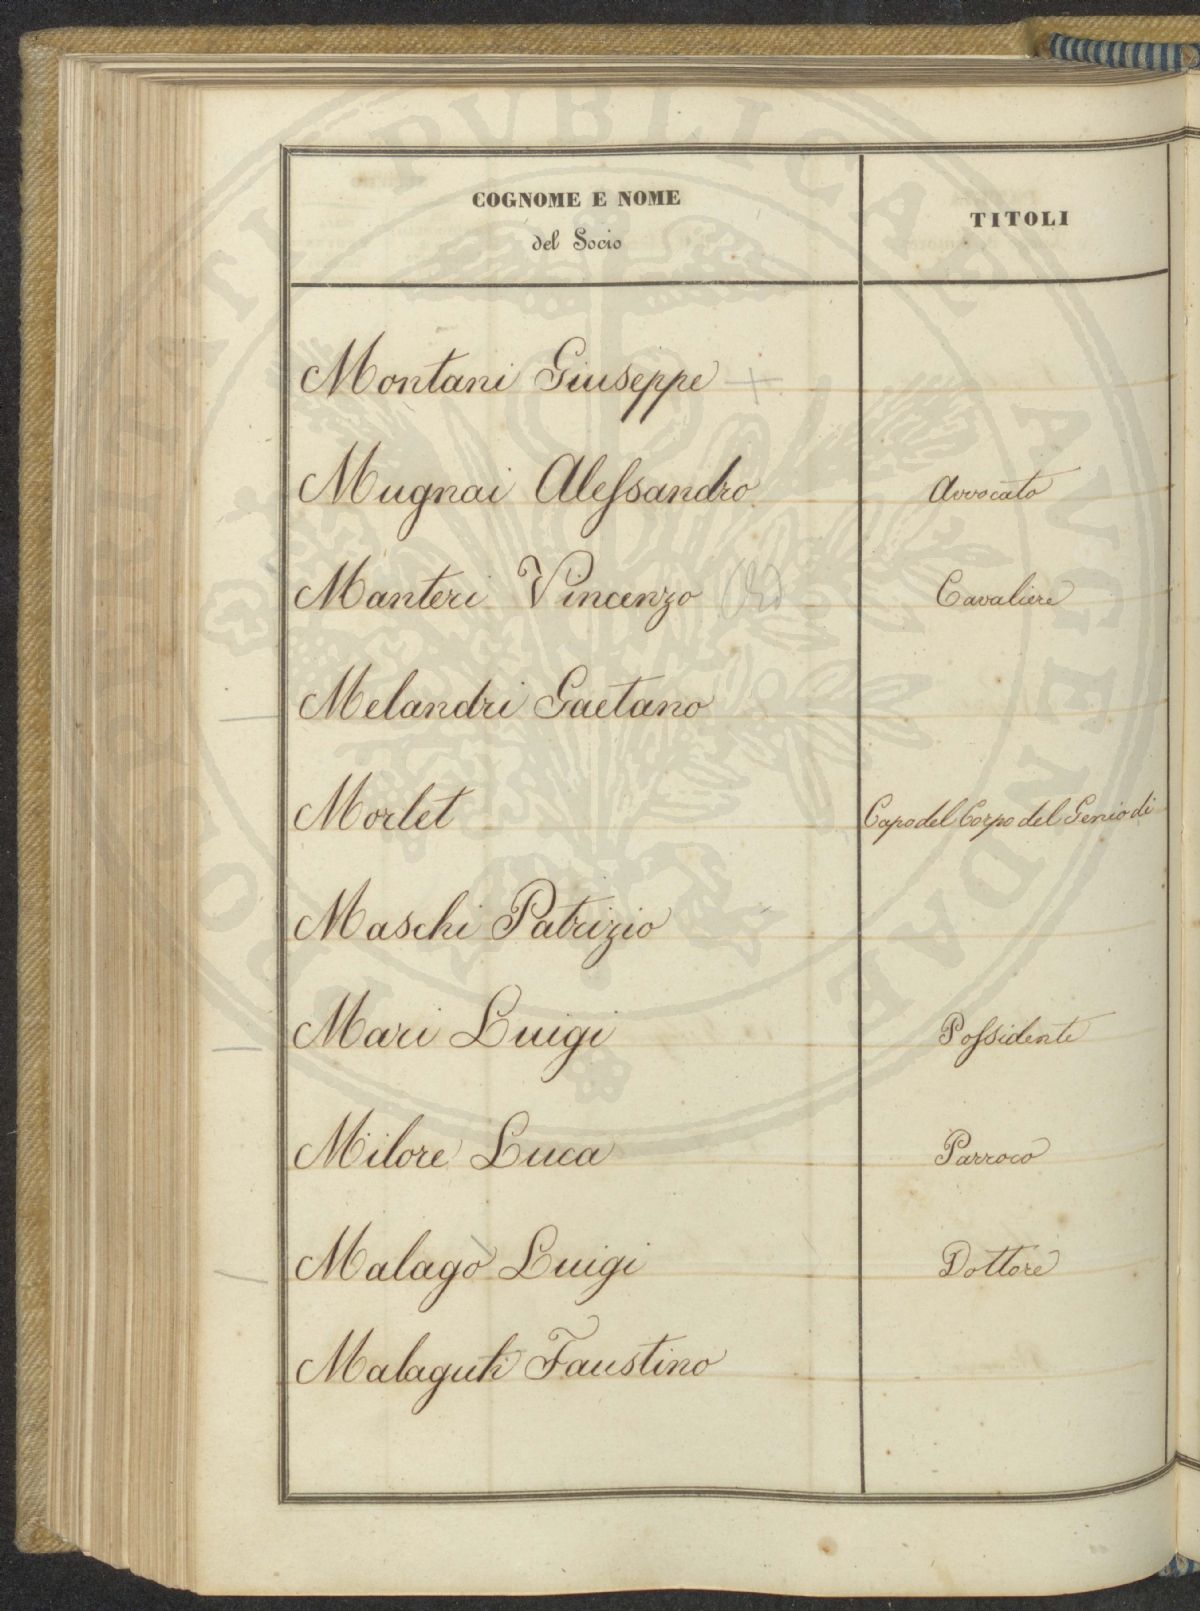 COGNOME E NOME
del Socio
TITOLI
Montani Giuseppe +
Mugnai Alessandro Avvocato
Manteri Vincenzo Cavaliere
Melandri Gaetano
Morlet Capo del Corpo del Genio di
Maschi Patrizio
Mari Luigi Possidente
Milore Luca Parroco
Malagò Luigi Dottore
Malaguti Faustino